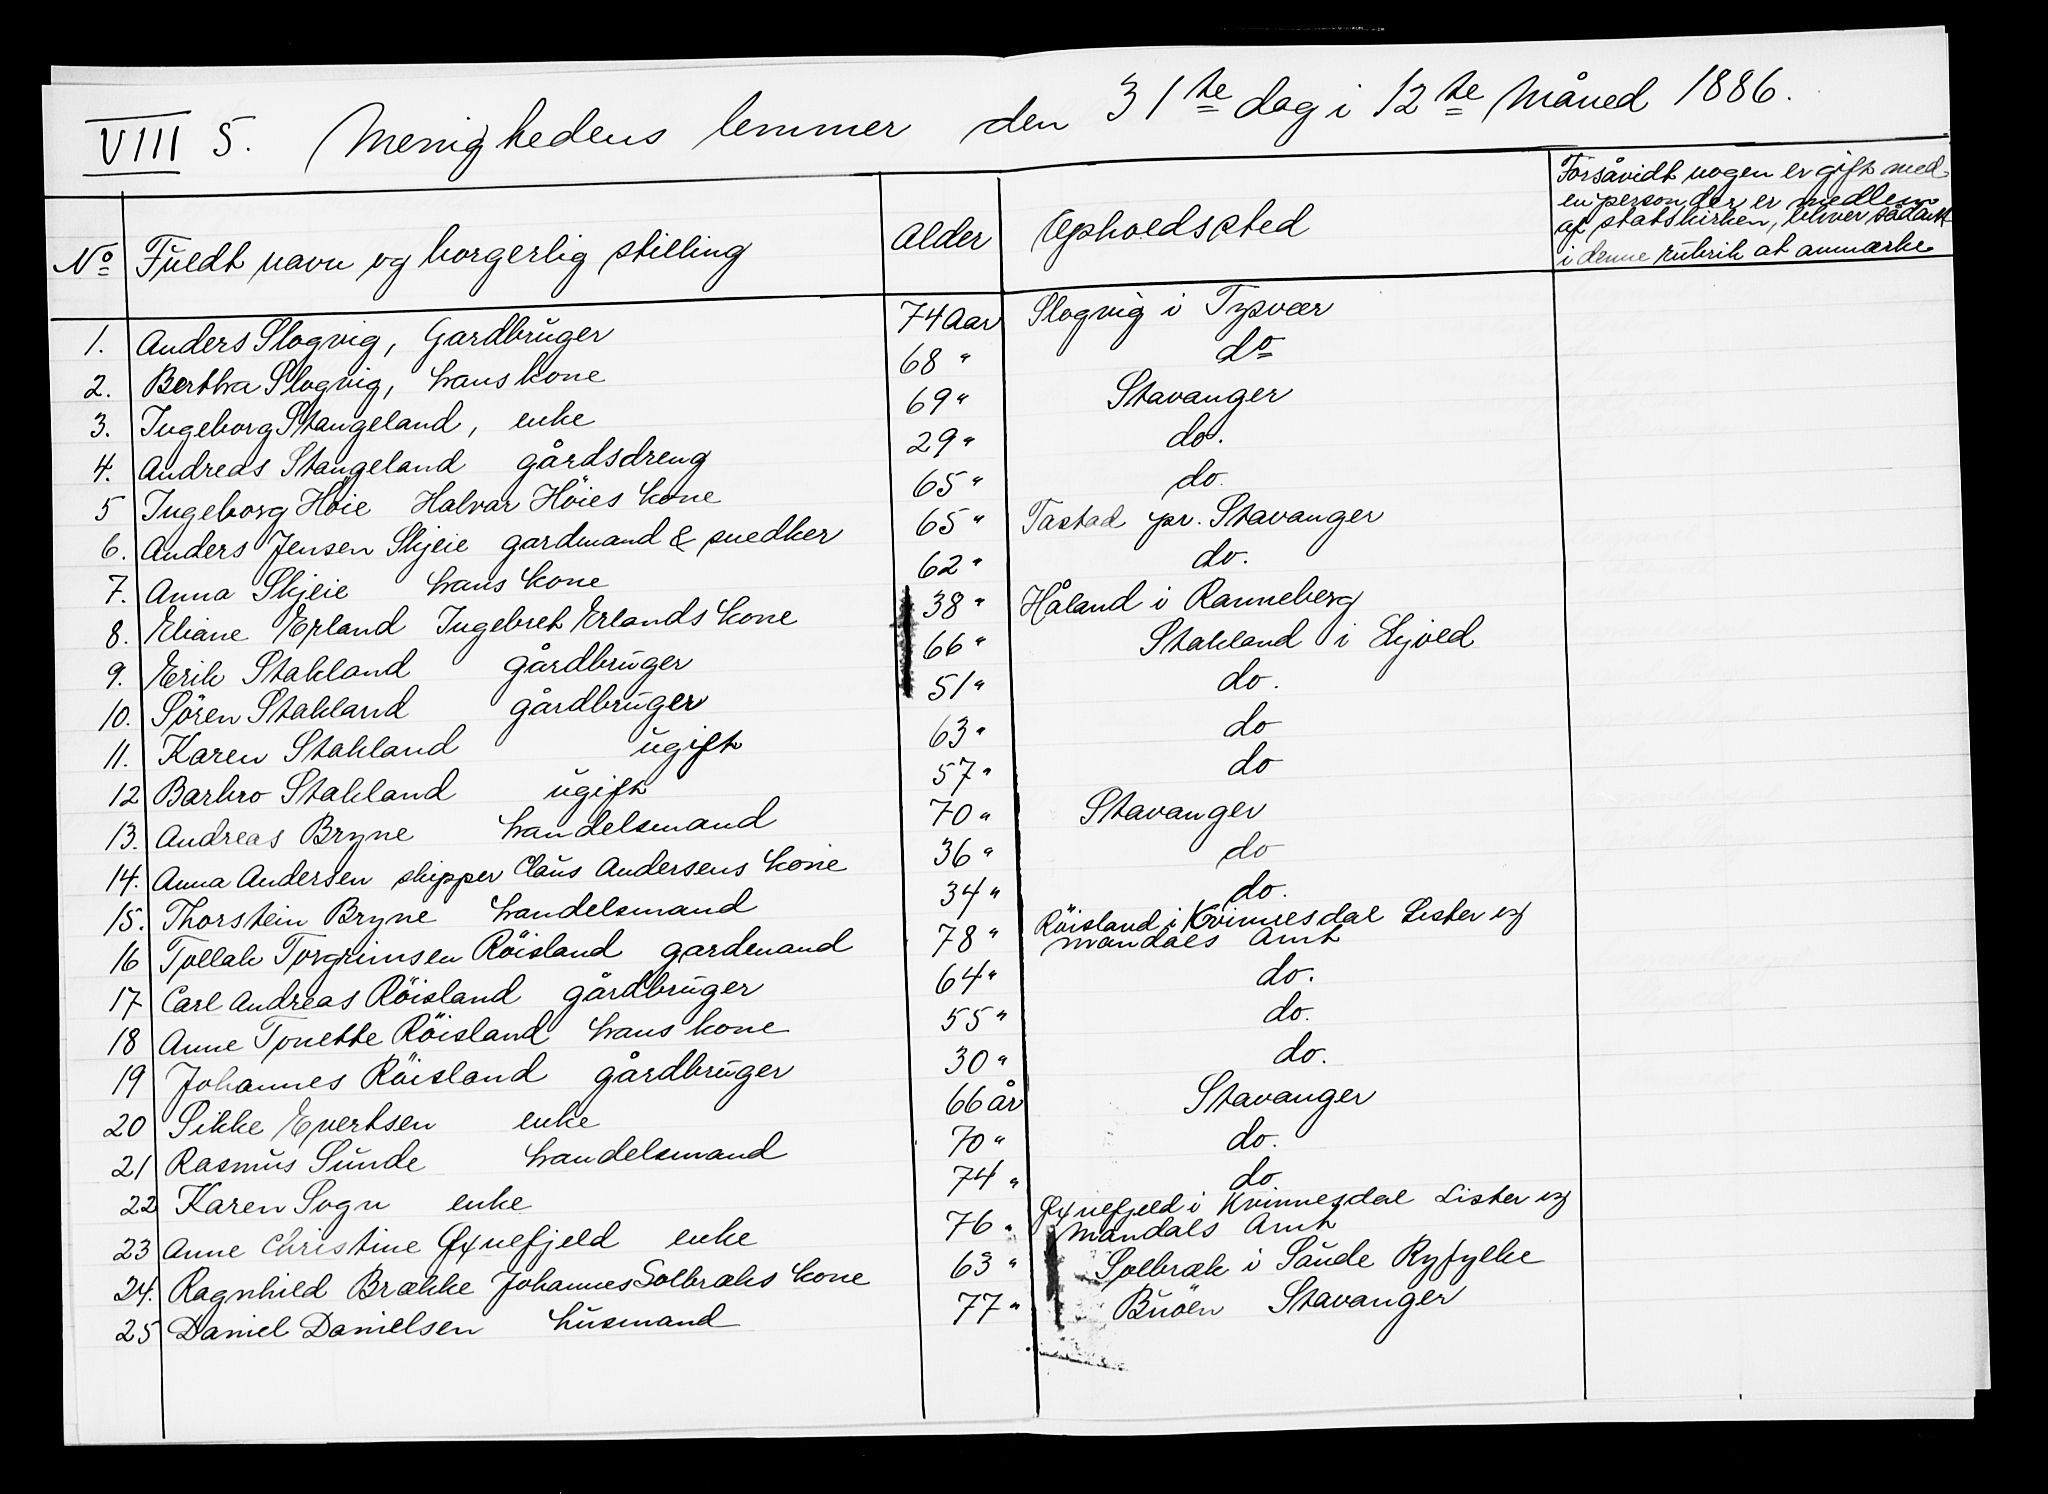 VIII 5. Menighedens lemmer den 31te dag i 12te Måned 1886.
No Fuldt navn og borgerlig stilling Alder Opholdssted
Forsåvidt nogen er gift med
en person, der er medlem
af statskirken, bliver sådant
i denne rubrik at anmærke
1. Anders Slogvig, Gardbruger 74 Aar Slogvig i Tysvær
2. Bertha Slogvig, hans kone 68 " do
3. Ingeborg Stangeland, enke 69 " Stavanger
4. Andreas Stangeland gårdsdreng 29 " do.
5 Ingeborg Höie Halvar Höies kone 65 " do.
6. Anders Jensen Skjeie gardmand & snedker 65 " Tastad pr. Stavanger
7. Anna Skjeie hans kone 62 " do.
8. Eliane Erland Ingebret Erlands kone 38 " Håland i Ranneberg
9. Erik Stakland gårdbruger 66 " Stakland i Skjold
10. Sören Stakland gårdbruger 51 " do.
11. Karen Stakland ugift 63 " do
12 Barbro Stakland ugift 57 " do
13. Andreas Bryne handelsmand 70 " Stavanger
14. Anna Andersen skipper Claus Andersens kone 36 " do
15. Thorstein Bryne handelsmand 34 " do.
16 Tollak Torgrimsen Röisland gardmand 78 " Röisland i Kvinnesdal Lister og
Mandals Amt
17 Carl Andreas Röisland gårdbruger 64 " do.
18 Anne Tonette Röisland hans kone 55 " do.
19 Johannes Röisland gårdbruger 30 " do.
20 Sikke Evertsen enke 66 år Stavanger
21 Rasmus Sunde handelsmand 70 " do.
22 Karen Sogn enke 74 " do
23 Anne Christine Øxnefjeld enke 76 " Øxnefjeld i Kvinnesdal Lister og
Mandals Amt
24. Ragnhild Brække Johannes Solbræks kone 63 " Solbræk i Saude Ryfylke
25 Daniel Danielsen husmand 77 " Buöen Stavanger